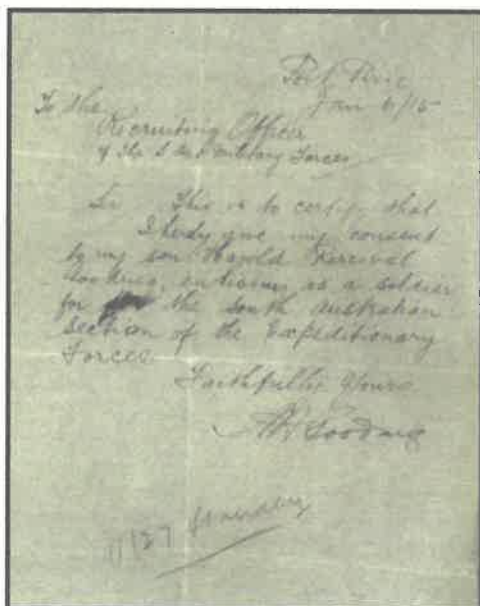 Port Pirie
Jan 6/15
To the
Recruiting Officer
of the S Aus Military Forces
Sir This is to certify that
I hereby give my consent
to my son Harold Percival
as a soldier
for the South Australian
section of the Expeditionary
Forces
Faithfully Yours